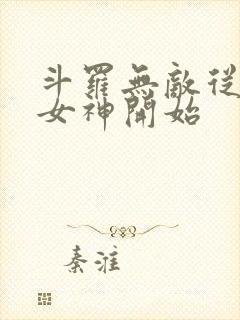 斗羅無敵從
女神開始
秦淮